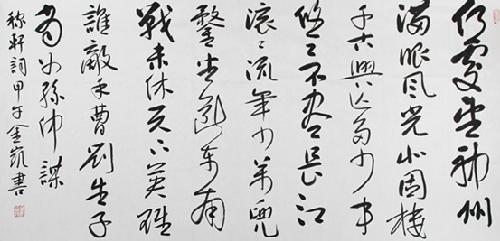 何處望神州
滿眼風光北固樓
千古興亡多少事
悠悠不盡長江
滾滾流年少萬兜
鍪坐斷東南
戰未休天下英雄
誰敵手曹劉生子
當如孫仲謀
稼軒詞甲午金凱書